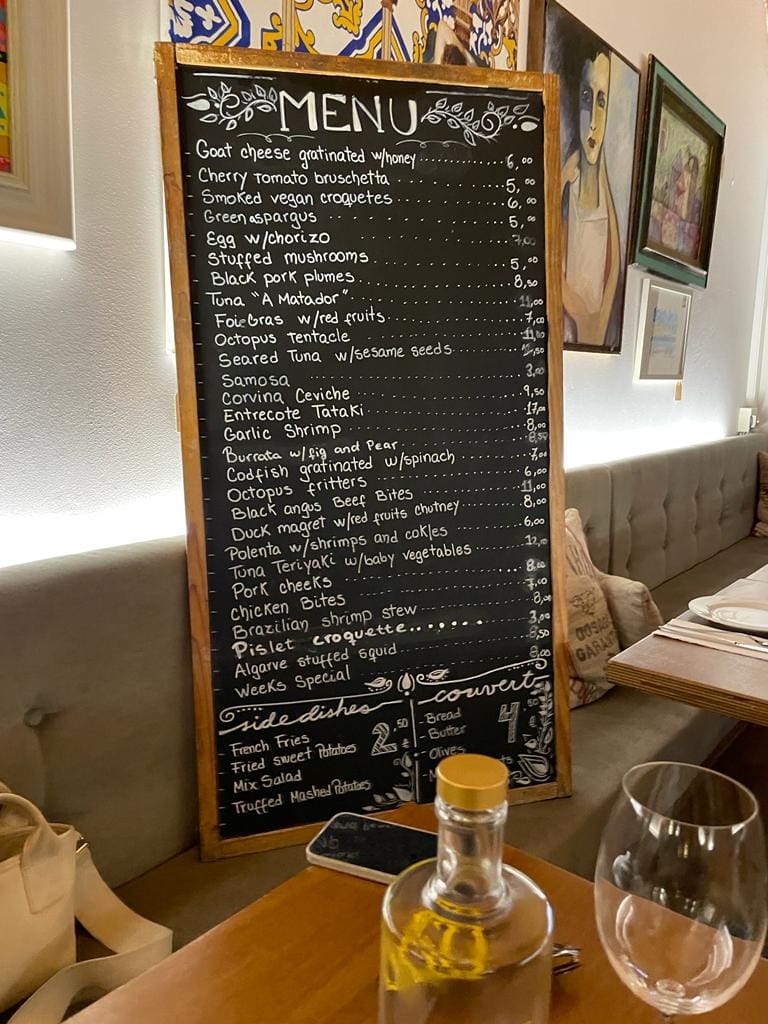 MENU
Goat cheese gratinated w/honey 6,00
Cherry Tomato bruschetta 5,00
Smoked vegan croquetes 6,00
Green aspargus 5,00
Egg w/chorizo 7,00
Stuffed mushrooms 5,00
Black pork plumes 8,50
Tuna "A Matador" 11,00
FoieGras w/red fruits 7,00
Octopus Tentacle 11,00
Seared Tuna w/sesame seeds
Samosa 3,00
Corvina Ceviche 9,50
Entrecote Tataki 17,00
Garlic Shrimp 8,00
Burrata w/fig and Pear 8,50
Codfish gratinated w/spinach 7,00
Octopus fritters 6,00
Black angus Beef Bites 11,00
Duck magret w/red fruits chutney 8,00
Polenta w/shrimps and cokles 6,00
Tuna Teriyaki w/baby vegetables 12,00
Pork cheeks 8,00
Chicken Bites 7,00
Brazilian shrimp stew 8,00
Pislet croquette 3,00
Algarve stuffed squid 8,50
Weeks Special
side dishes 2,50
French Fries
Fried sweet Potatoes
Mix Salad
Truffed Mashed Potatoes
couvert 4,50
Bread
Butter
Olives